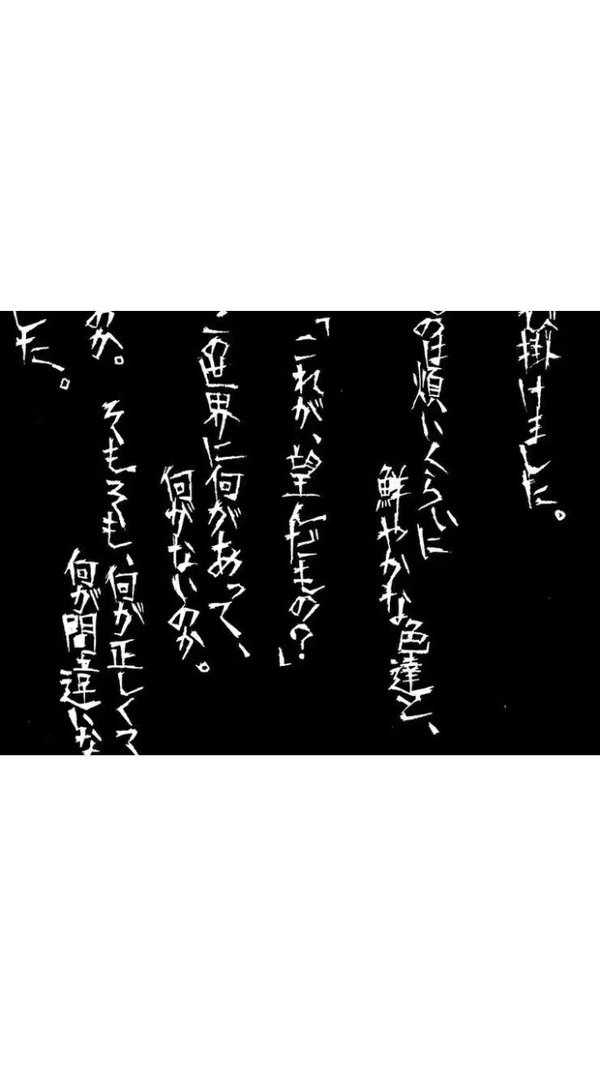 び掛けました。
のは煩いくらいに
鮮やかな色達と、
「これが、望んだもの？」
この世界に何があって、
何がないのか。
そもそも、何が正しくて
何が間違いな
のか。
した。